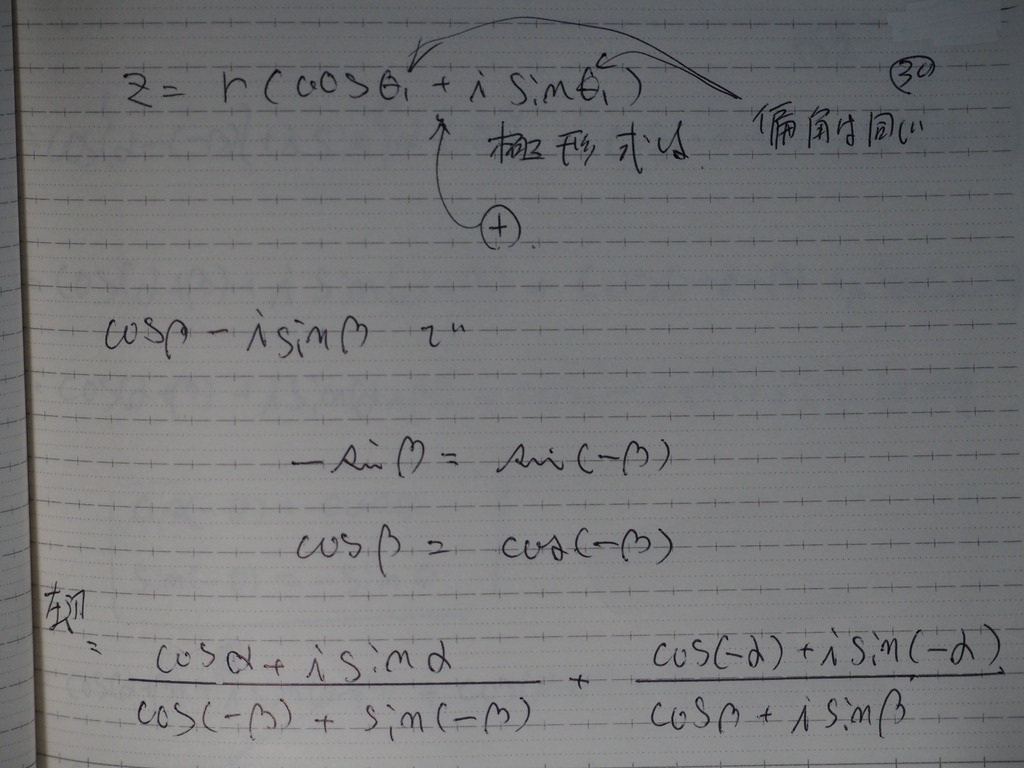 ㉚
z = r(cosθ₁ + i sinθ₁)
極形式は 偏角は同じ
⊕
cosβ - i sinβ で
-sinβ = sin(-β)
cosβ = cos(-β)
左辺
= (cosα + i sinα)/(cos(-β) + sin(-β)) + (cos(-α) + i sin(-α))/(cosβ + i sinβ)